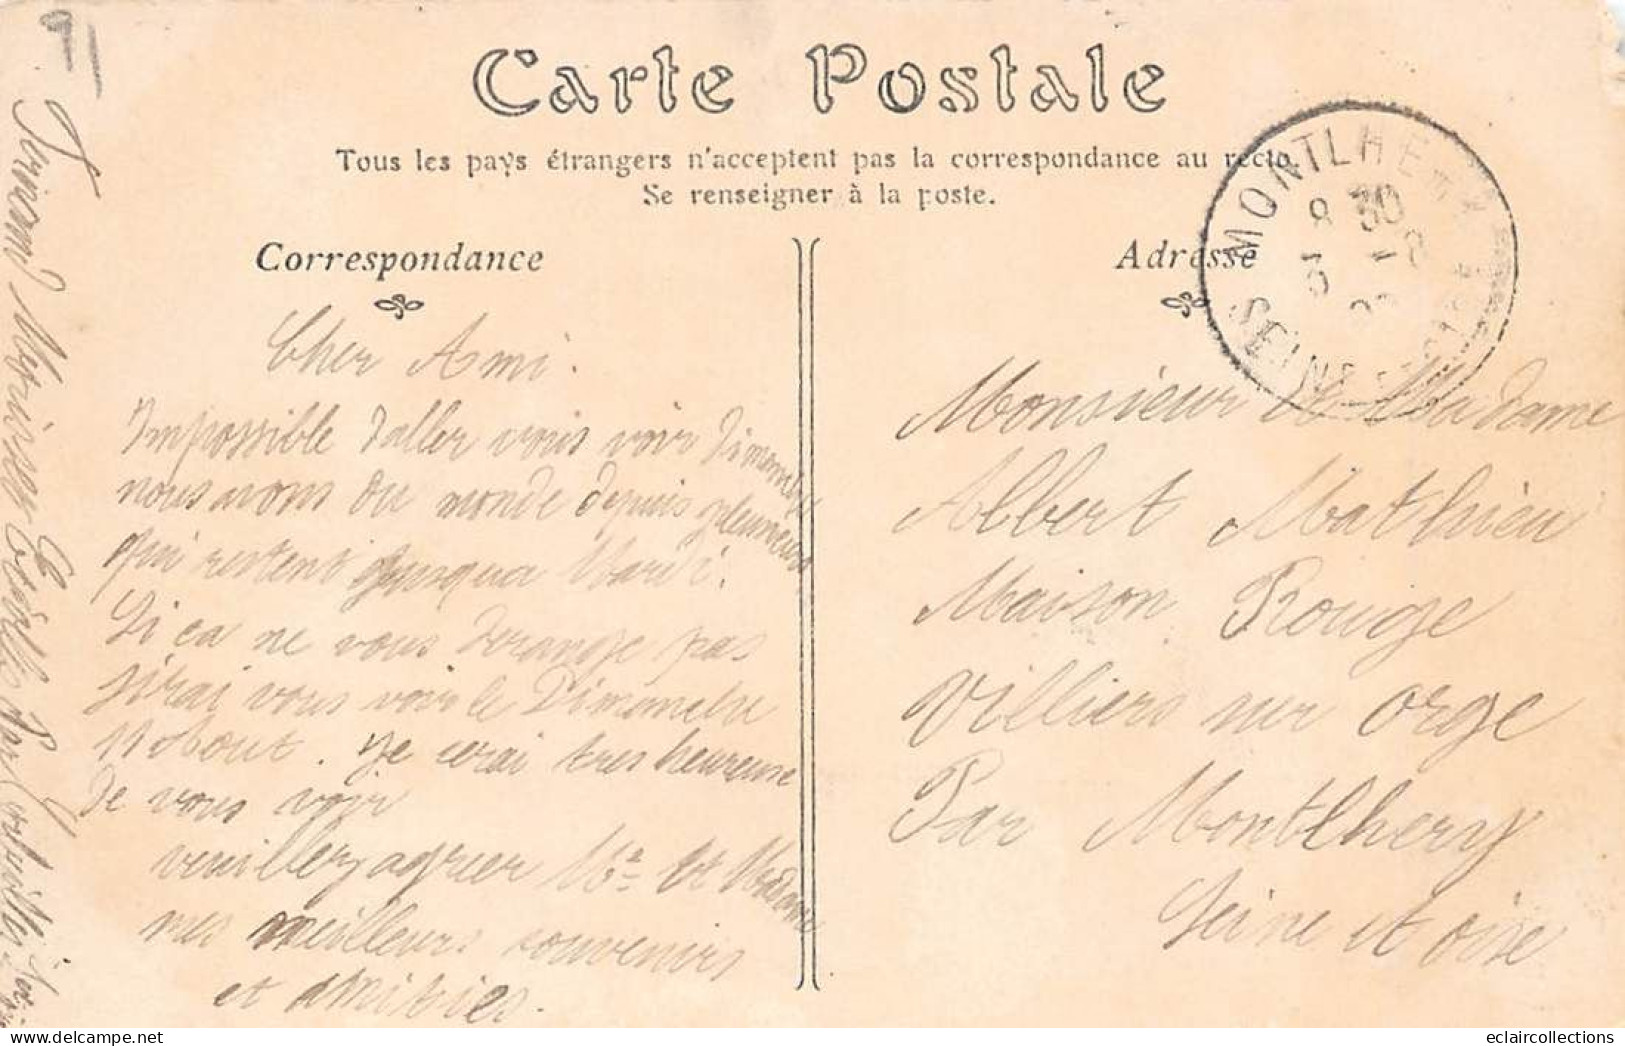 91
Carte Postale
Tous les pays étrangers n'acceptent pas la correspondance au recto.
Se renseigner à la poste.
Correspondance
Cher Ami.
Impossible daller vous voir Dimanche
nous avons du monde depuis
qui restent Jusqua Mardi.
Si ca ne vous derange pas
jirai vous voir le Dimanche
11 Aout. Je serai tres heureuse
de vous voir
veuillez agréer Mr et Madame
mes meilleurs souvenirs
et amitiés.
Adresse
MONTLHERY
8 30
3 - 8
SEINE ET OISE
Monsieur et Madame
Albert Mathieu
Maison Rouge
Villiers sur orge
Par Montlhery
Seine et oise
eclaircollections